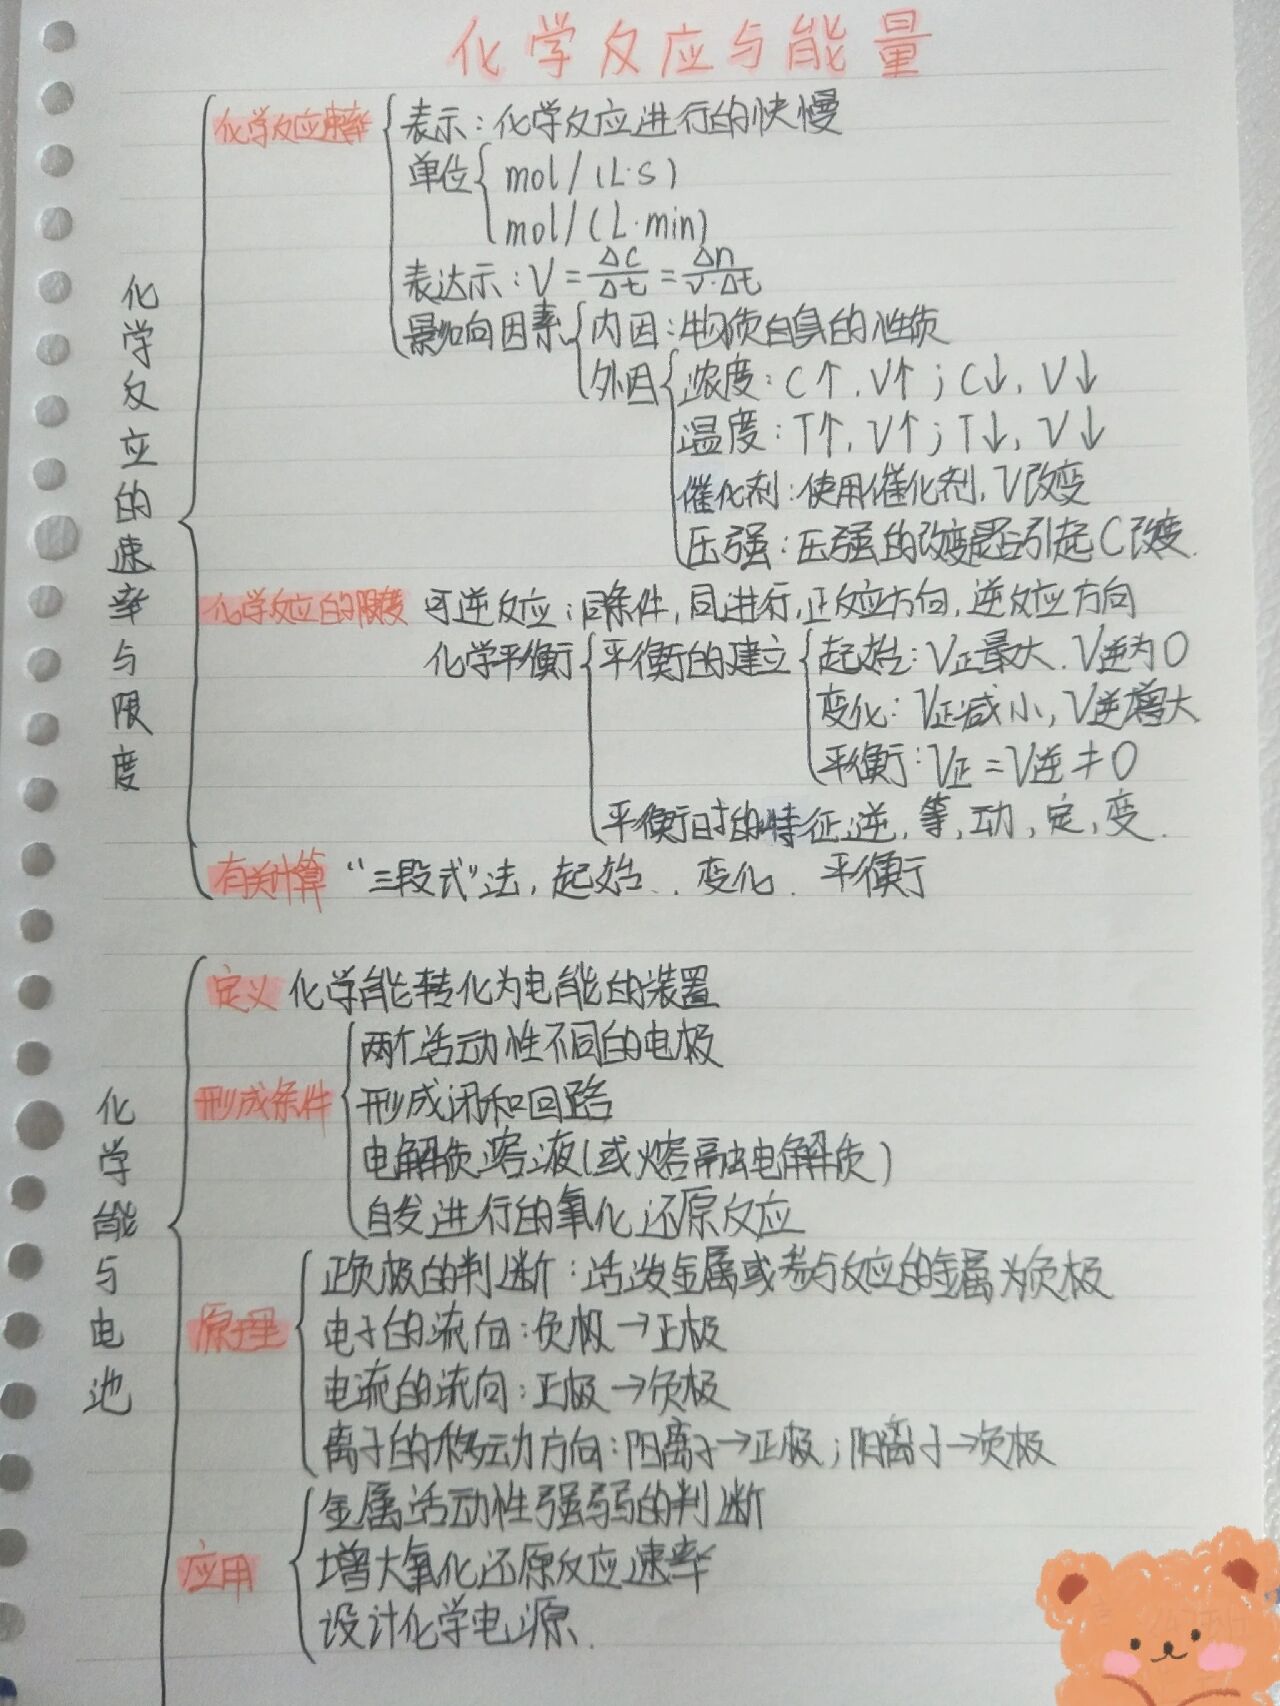 化学反应与能量
化学反应的速率与限度
化学反应速率
表示：化学反应进行的快慢
单位
mol/(L·s)
mol/(L·min)
表达示：V=Δc/Δt=Δn/v·Δt
影响因素
内因：物质自身的性质
外因
浓度：C↑,V↑；C↓,V↓
温度：T↑,V↑；T↓,V↓
催化剂：使用催化剂,V改变
压强：压强的改变是否引起C改变.
化学反应的限度
可逆反应：同条件,同进行,正反应方向,逆反应方向
化学平衡
平衡的建立
起始：V正最大.V逆为0
变化：V正减小,V逆增大
平衡：V正=V逆≠0
平衡时的特征:逆,等,动,定,变.
有关计算
“三段式”法,起始、变化、平衡
化学能与电池
定义 化学能转化为电能的装置
形成条件
两个活动性不同的电极
形成闭和回路
电解质溶液(或熔融电解质)
自发进行的氧化还原反应
原理
正负极的判断：活泼金属或参与反应的金属为负极
电子的流向：负极→正极
电流的流向：正极→负极
离子的移动方向：阳离子→正极；阴离子→负极
应用
金属活动性强弱的判断
增大氧化还原反应速率
设计化学电源.